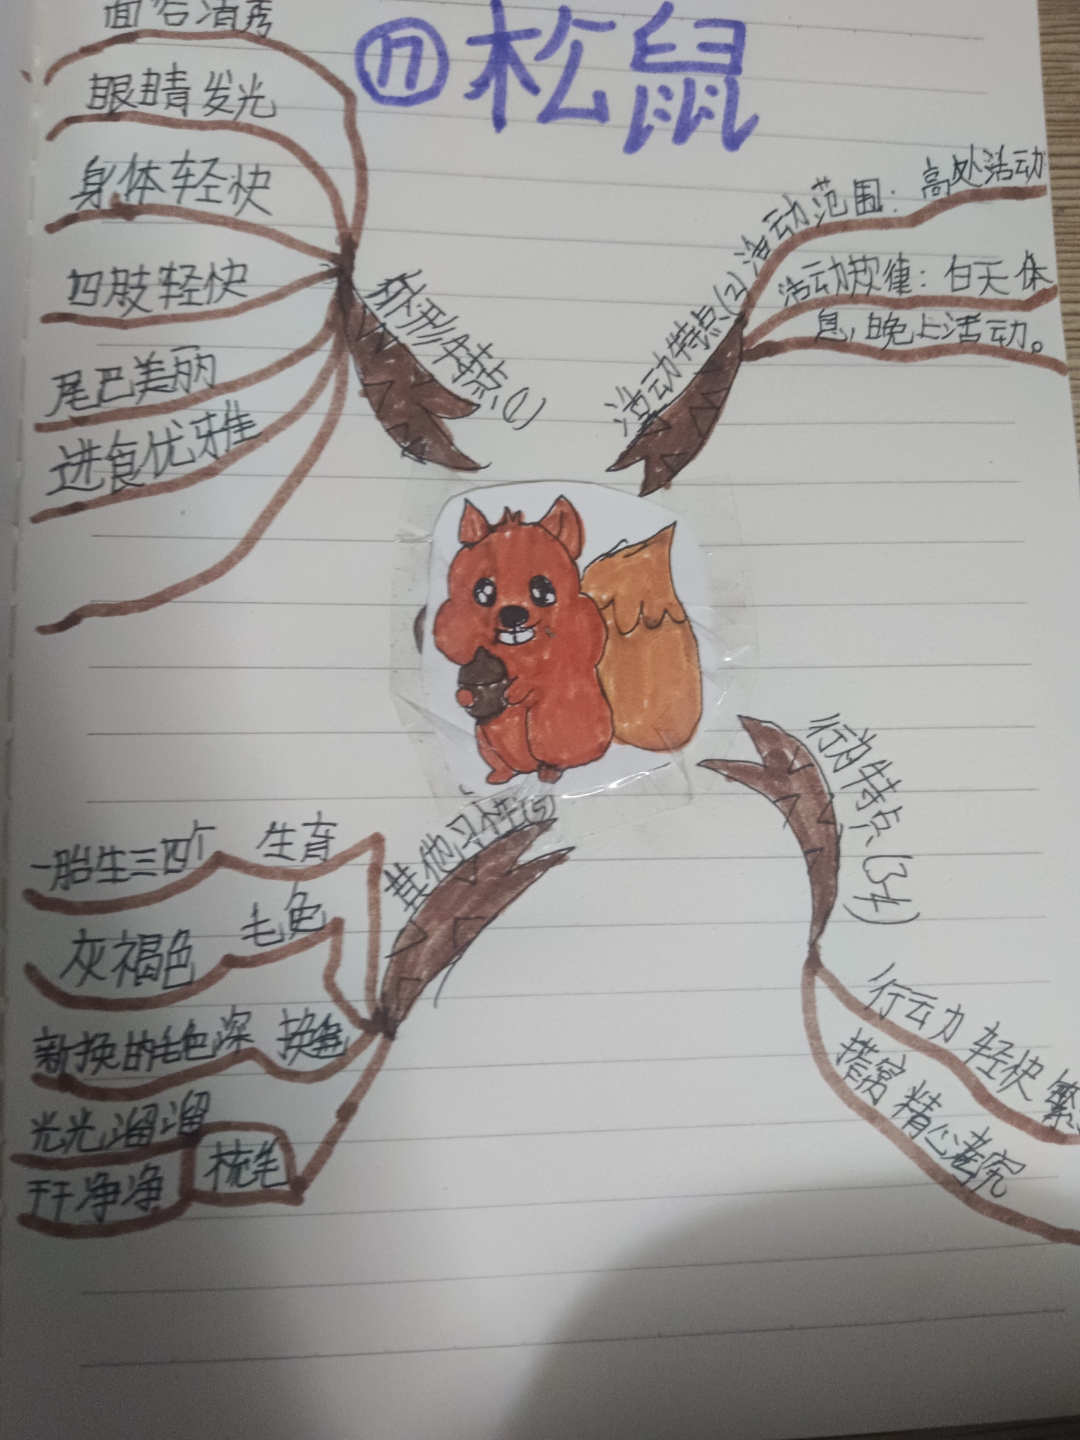 ⑰松鼠
外形特点(1)
面容清秀
眼睛发光
身体轻快
四肢轻快
尾巴美丽
进食优雅
活动特点(2)
活动范围：高处活动
活动规律：白天休
息，晚上活动。
行为特点(34)
行动 轻快
搭窝 精心考究
其他习性(5)
一胎生三四个 生育
灰褐色 毛色
新换的毛色深 换毛
光光溜溜
干干净净 梳毛